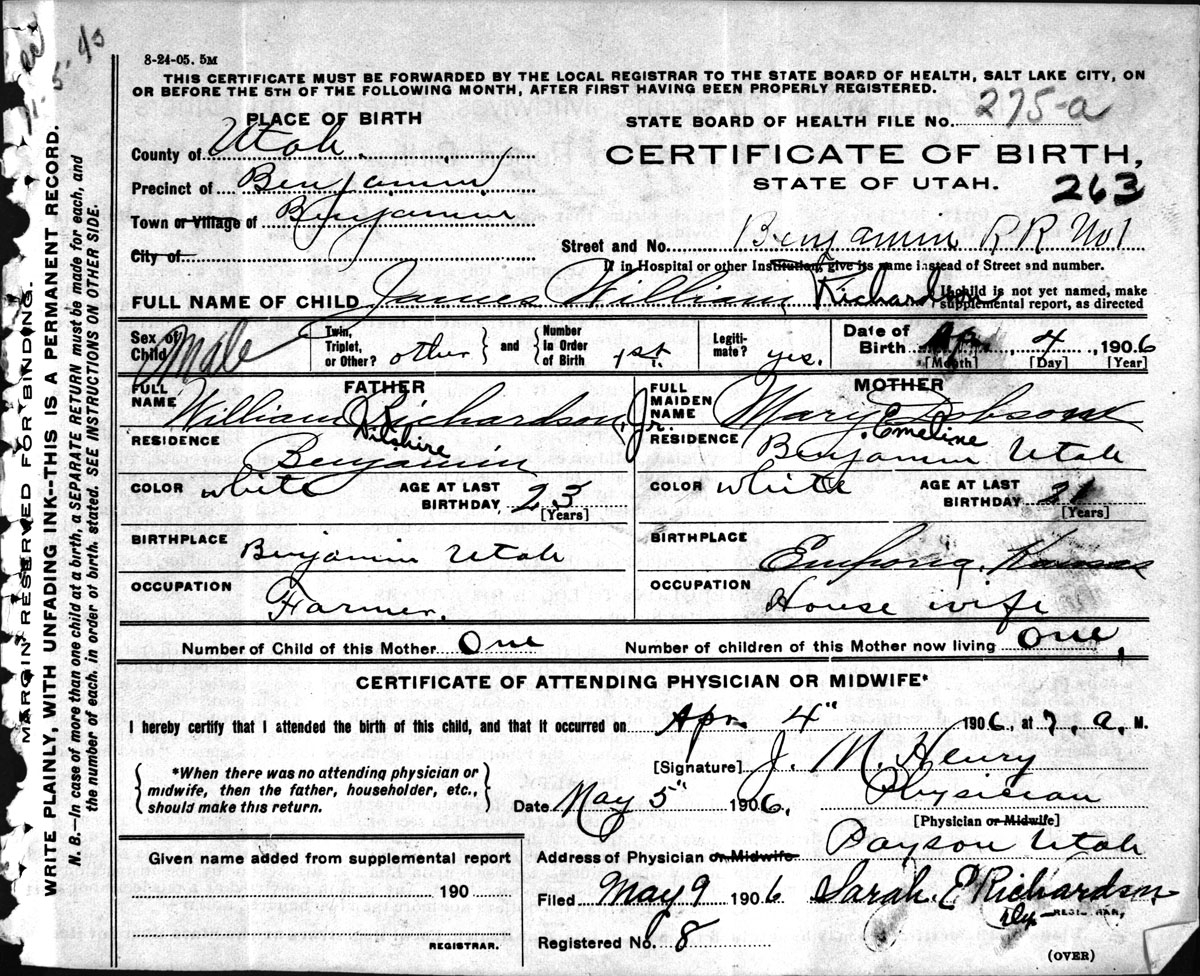 8-24-05. 5M
THIS CERTIFICATE MUST BE FORWARDED BY THE LOCAL REGISTRAR TO THE STATE BOARD OF HEALTH, SALT LAKE CITY, ON
OR BEFORE THE 5TH OF THE FOLLOWING MONTH, AFTER FIRST HAVING BEEN PROPERLY REGISTERED.
PLACE OF BIRTH
STATE BOARD OF HEALTH FILE NO. 275-a
County of Utah.
CERTIFICATE OF BIRTH,
STATE OF UTAH.
263
Precinct of Benjamin
Town or Village of Benjamin
City of
Street and No. Benjamin R R No 1
If in Hospital or other Institution, give its name instead of Street and number.
FULL NAME OF CHILD James William Richardson
If child is not yet named, make
supplemental report, as directed
Sex of Child Male
Twin, Triplet, or Other? other and Number In Order of Birth 1st.
Legitimate? yes.
Date of Birth Apr, 4, 1906
[Month] [Day] [Year]
FATHER
FULL NAME William Richardson, Jr.
Wilshire
RESIDENCE Benjamin
COLOR white AGE AT LAST BIRTHDAY, 23
[Years]
BIRTHPLACE Benjamin Utah
OCCUPATION Farmer.
MOTHER
FULL MAIDEN NAME Mary E Dobson
Emeline
RESIDENCE Benjamin Utah
COLOR white AGE AT LAST BIRTHDAY 21
[Years]
BIRTHPLACE Emporia, Kansas
OCCUPATION House wife
Number of Child of this Mother One
Number of children of this Mother now living one,
CERTIFICATE OF ATTENDING PHYSICIAN OR MIDWIFE*
I hereby certify that I attended the birth of this child, and that it occurred on Apr 4" 1906, at 7, a. M.
*When there was no attending physician or
midwife, then the father, householder, etc.,
should make this return.
[Signature] J. M. Henry
Date May 5" 1906. Physician
[Physician or Midwife]
Address of Physician or Midwife Payson Utah
Given name added from supplemental report
190
REGISTRAR.
Filed May 9 1906 Sarah E Richardson
Dep REGISTRAR,
Registered No. 8
(OVER)
MARGIN RESERVED FOR BINDING.
WRITE PLAINLY, WITH UNFADING INK--THIS IS A PERMANENT RECORD.
N. B.—In case of more than one child at a birth, a SEPARATE RETURN must be made for each, and
the number of each, in order of birth, stated. SEE INSTRUCTIONS ON OTHER SIDE.